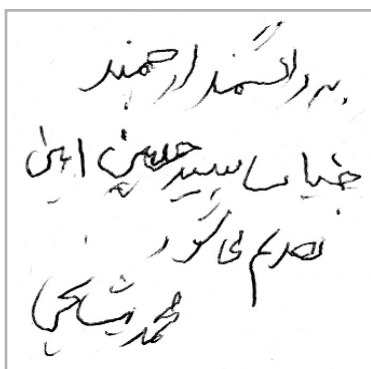 به دانشمند ارجمند
جناب سید حسین امین
تقدیم می گردد
محمد